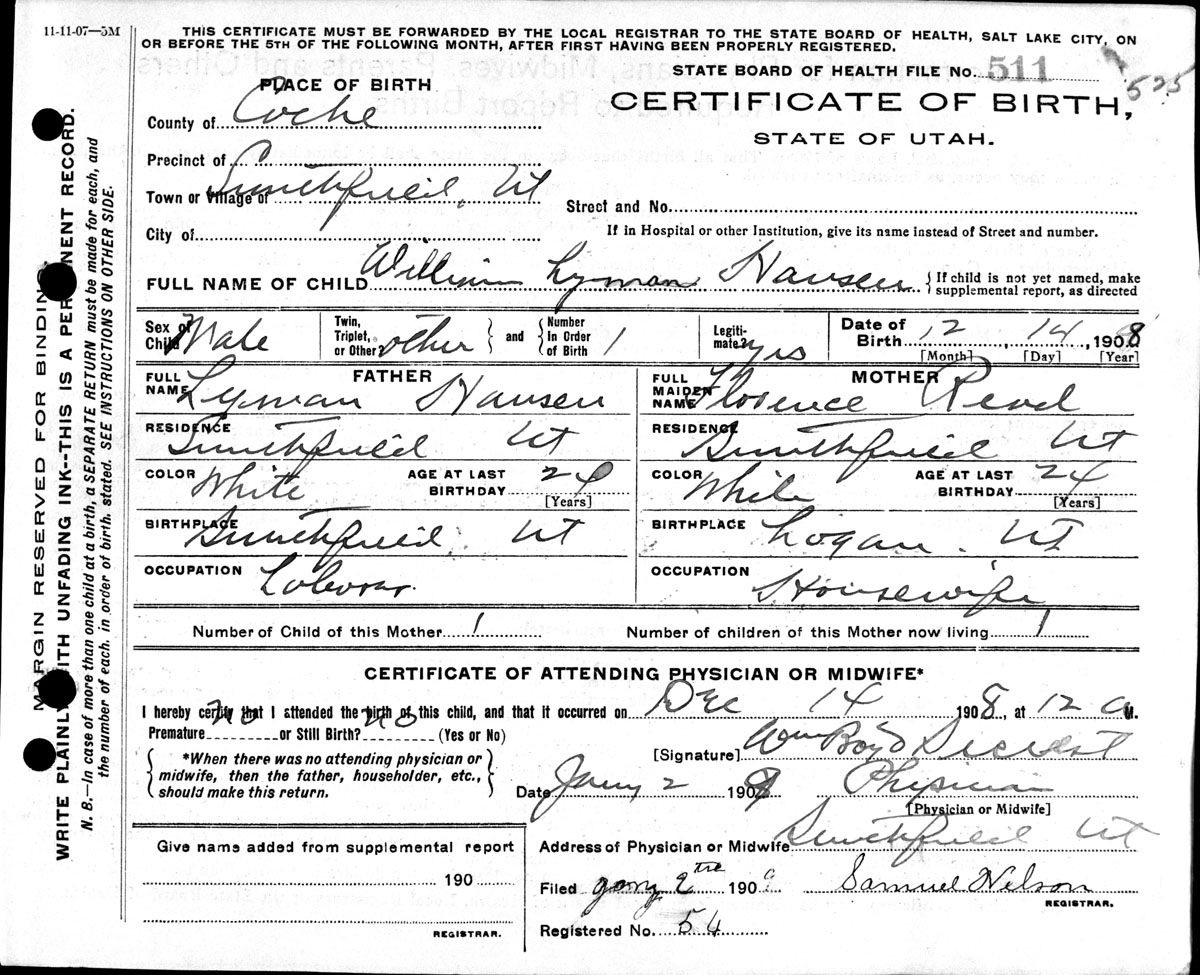 11-11-07—5M
THIS CERTIFICATE MUST BE FORWARDED BY THE LOCAL REGISTRAR TO THE STATE BOARD OF HEALTH, SALT LAKE CITY, ON
OR BEFORE THE 5TH OF THE FOLLOWING MONTH, AFTER FIRST HAVING BEEN PROPERLY REGISTERED.
STATE BOARD OF HEALTH FILE No. 511
525
CERTIFICATE OF BIRTH,
STATE OF UTAH.
PLACE OF BIRTH
County of Cache
Precinct of
Town or Village of Smithfield, Ut
Street and No.
City of
If in Hospital or other Institution, give its name instead of Street and number.
FULL NAME OF CHILD William Lyman Hansen { If child is not yet named, make
supplemental report, as directed
Sex of Child Male
Twin, Triplet, or Other? other } and { Number In Order of Birth 1
Legitimate? yes
Date of Birth 12, 14, 1908
[Month] [Day] [Year]
FATHER
FULL NAME Lyman Hansen
RESIDENCE Smithfield Ut
COLOR White AGE AT LAST BIRTHDAY 24 [Years]
BIRTHPLACE Smithfield, Ut
OCCUPATION Laborer.
MOTHER
FULL MAIDEN NAME Florence Read
RESIDENCE Smithfield Ut
COLOR White AGE AT LAST BIRTHDAY 24 [Years]
BIRTHPLACE Logan. Ut
OCCUPATION Housewife
Number of Child of this Mother 1 Number of children of this Mother now living 1
CERTIFICATE OF ATTENDING PHYSICIAN OR MIDWIFE*
I hereby certify that I attended the birth of this child, and that it occurred on Dec 14 1908, at 12 a M.
Premature no or Still Birth? no (Yes or No)
*When there was no attending physician or
midwife, then the father, householder, etc.,
should make this return.
[Signature] Wm Boyd
Date Jany 2 1909 Physician
[Physician or Midwife]
Address of Physician or Midwife Smithfield Ut
Filed Jany 2 1909 Samuel Nelson
REGISTRAR.
Registered No. 54
Give name added from supplemental report
190
REGISTRAR.
MARGIN RESERVED FOR BINDING.
WRITE PLAINLY WITH UNFADING INK--THIS IS A PERMANENT RECORD.
N. B.—In case of more than one child at a birth, a SEPARATE RETURN must be made for each, and
the number of each, in order of birth, stated. SEE INSTRUCTIONS ON OTHER SIDE.